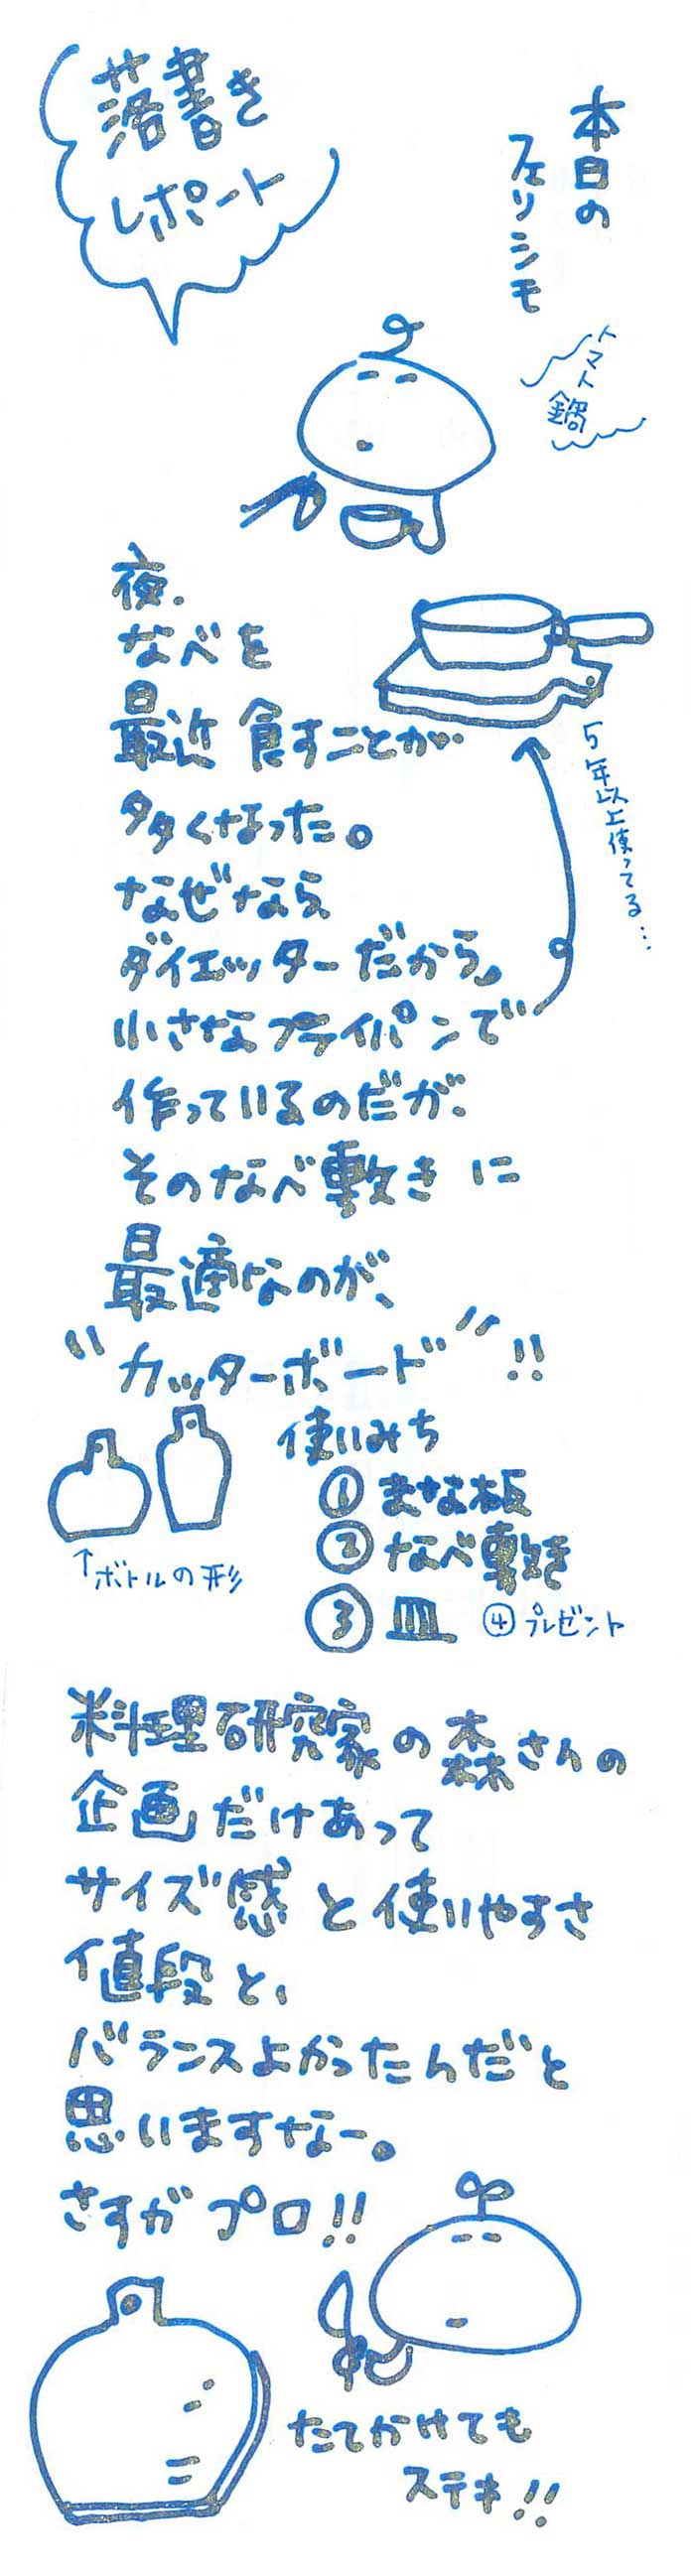 落書き
レポート
本日の
フェリシモ
トマト
鍋
夜、
なべを
最近 食すことが
多くなった。
なぜなら
ダイエッターだから。
小さなフライパンで
5年以上使ってる…
作っているのだが、
そのなべ敷きに
最適なのが、
"カッターボード"!!
↑ボトルの形
使いみち
① まな板
② なべ敷き
③ 皿 ④ プレゼント
料理研究家の森さんの
企画だけあって
サイズ感と使いやすさ
値段と、
バランスよかったんだと
思いますなー。
さすがプロ!!
たてかけても
ステキ!!